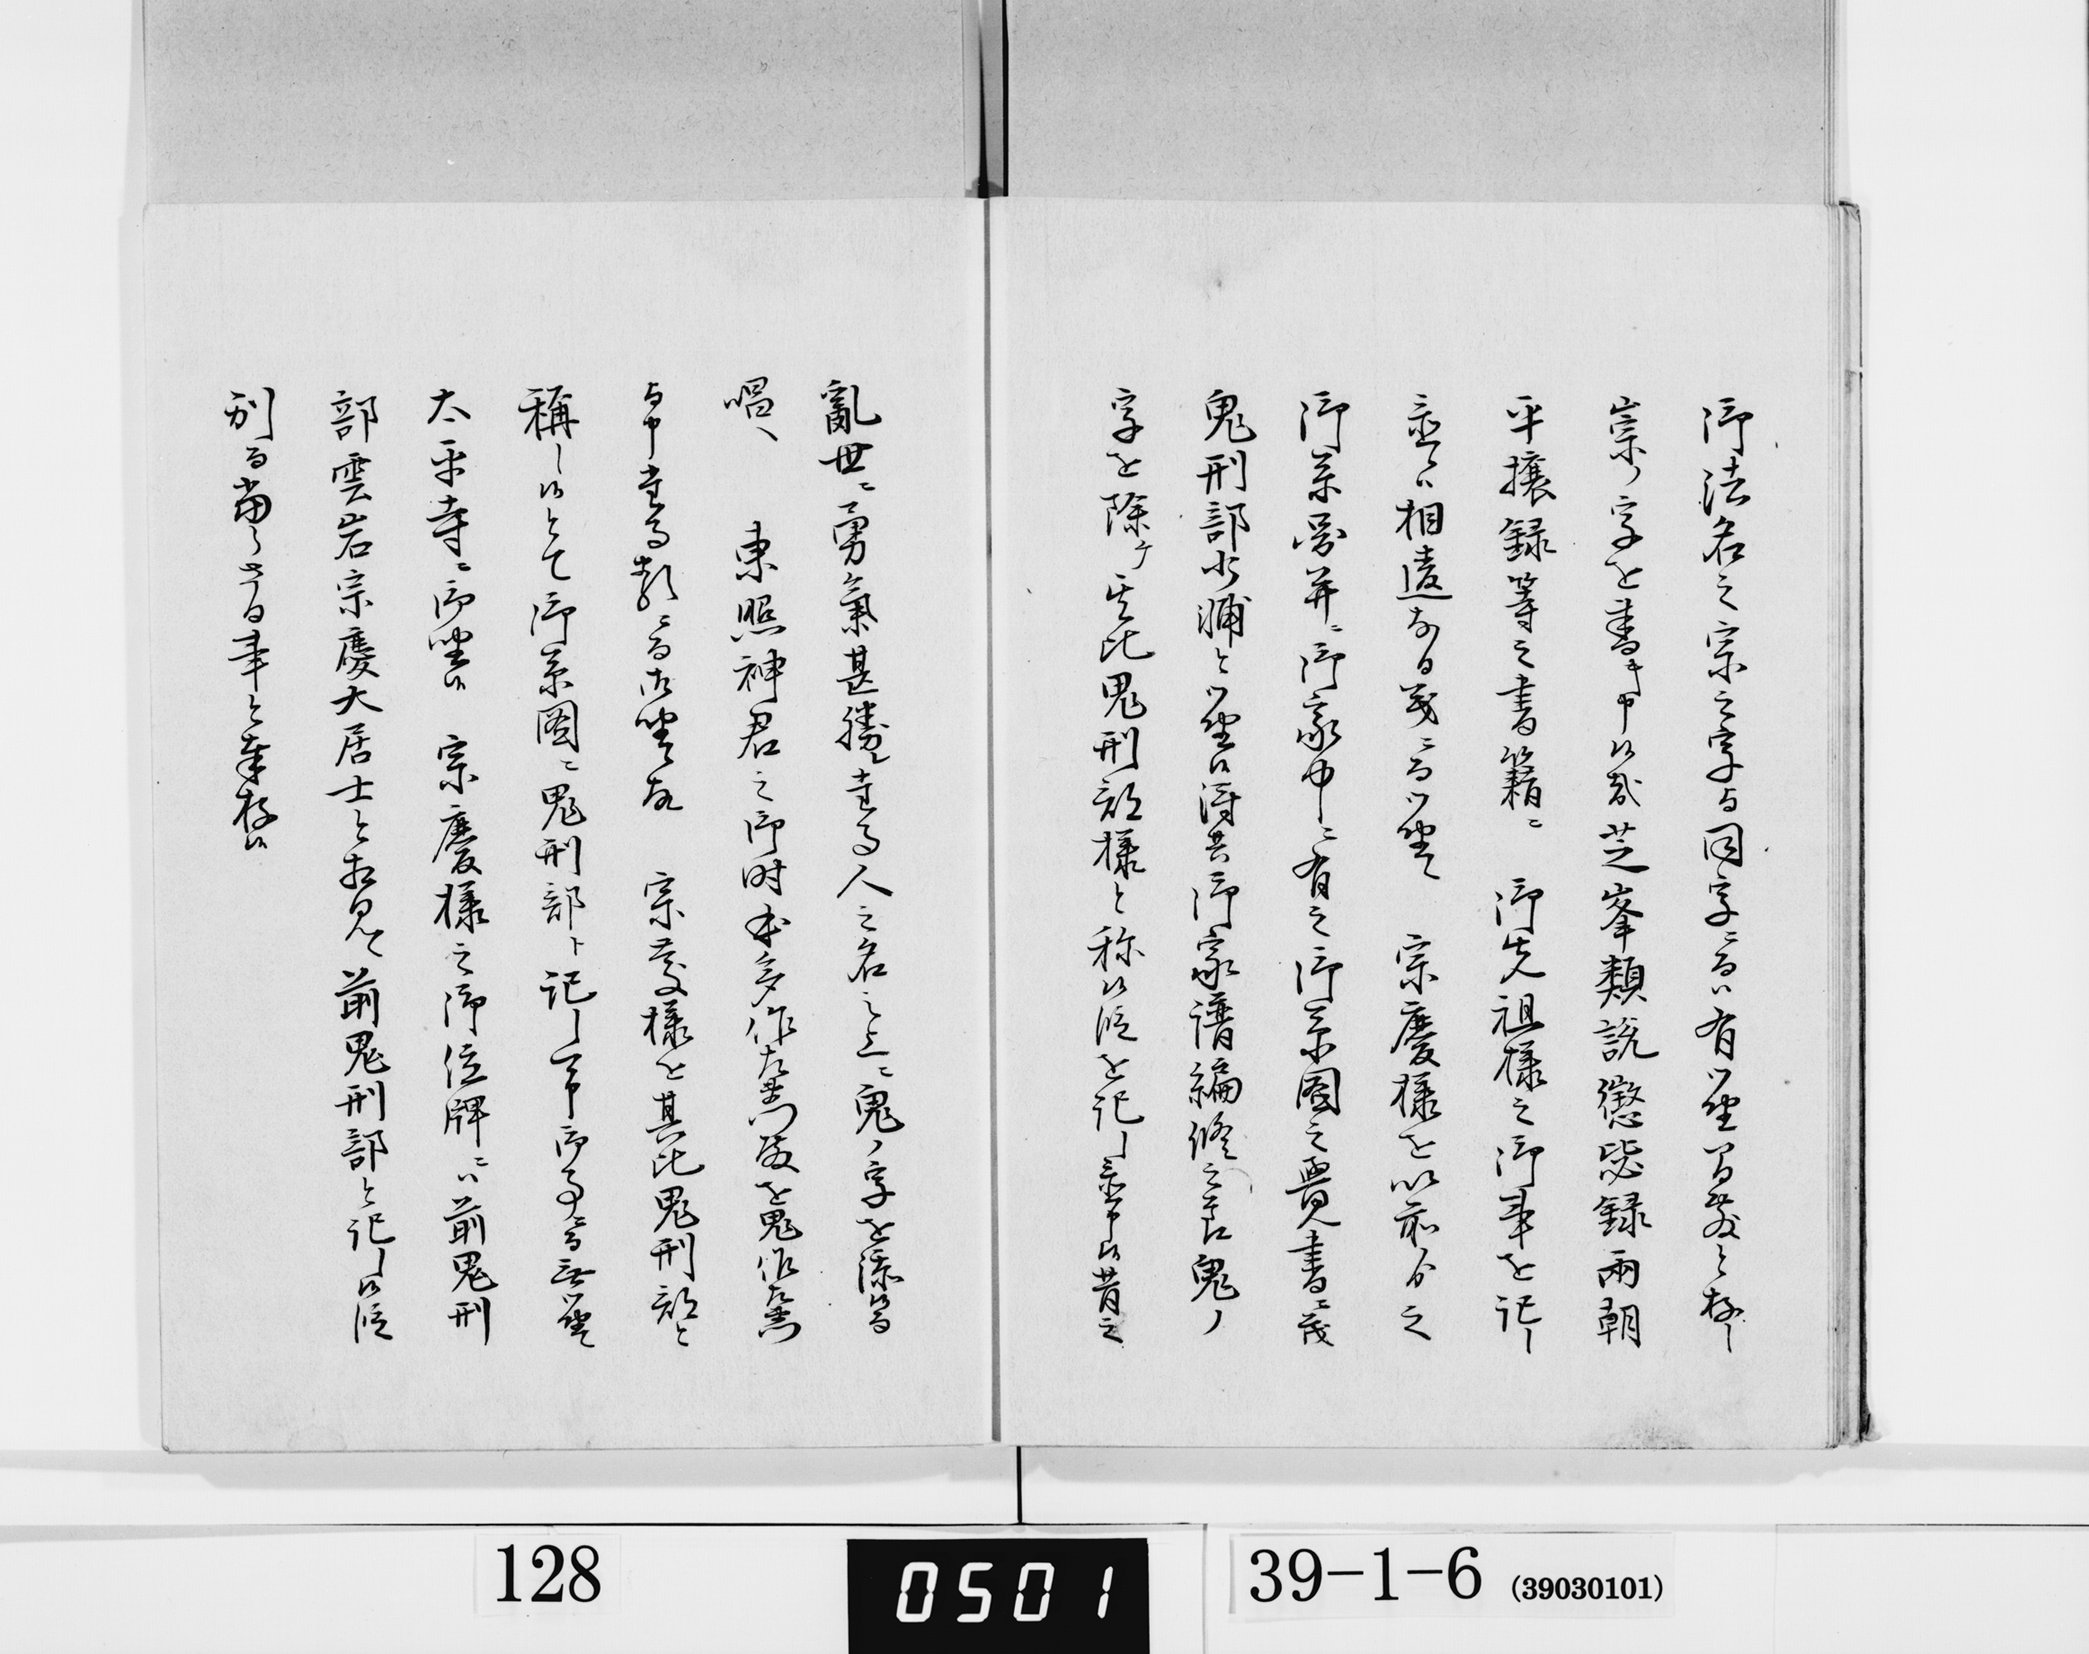 御法名之宗之字与同字ニ而ハ有御坐間敷と存し
崇ノ字を書キ申候哉芝峯類説懲毖録兩朝
平攘録等之書籍ニ 御先祖様之御事を記し
相違 宗慶様を以前ゟ之
御系図并ニ御家中ニ有之御系圖之覺書ニ茂
鬼刑部少輔と御坐候得共御家譜編修之節鬼ノ
字を除テ其比鬼刑部様と称候段を記し置申候昔之
亂世ニ勇氣甚勝レ候人之名之上ニ鬼ノ字を添候而
唱 東照神君之御時本多作左衛門殿を鬼作左衛門
与申 類ニ而御坐候故 宗慶様を其比鬼刑部と
稱し候とて御系圖ニ鬼刑部ト記し可申御事ニ而無御坐
太平寺ニ御坐候 宗慶様之御位牌ニハ前鬼刑
部雲岩宗慶大居士と相見へ前鬼刑部と記し候段
別而當 事と奉存候
128
0501
39-1-6 (39030101)